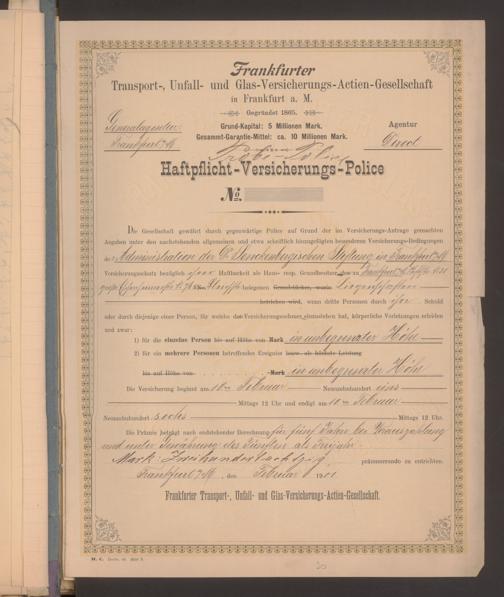 Frankfurter
Transport-, Unfall- und Glas-Versicherungs-Actien-Gesellschaft
in Frankfurt a. M.
Gegründet 1865.
Generalagentur
Frankfurt a/M
Grund-Kapital: 5 Millionen Mark.
Gesammt-Garantie-Mittel: ca. 10 Millionen Mark.
Agentur
Direct.
Haftpflicht-Versicherungs-Police
No.
Die Gesellschaft gewährt durch gegenwärtige Police auf Grund der im Versicherungs-Antrage gemachten
Angaben unter den nachstehenden allgemeinen und etwa schriftlich hinzugefügten besonderen Versicherungs-Bedingungen
de r Administration der Dr. Senckenbergischen Stiftung in Frankfurt a/M
Versicherungsschutz bezüglich ihrer Haftbarkeit als Haus- resp. Grundbesitzer
belegenen
betrieben wird, wenn dritte Personen durch ihre Schuld
oder durch diejenige einer Person, für welche das Versicherungsnehmer einzustehen hat, körperliche Verletzungen erleiden
und zwar:
1) für die einzelne Person bis auf Höhe von Mark in unbegrenzter Höhe
2) für ein mehrere Personen betreffendes Ereigniss bezw. als höchste Leistung
bis auf Höhe von Mark in unbegrenzter Höhe
Die Versicherung beginnt am 10ten Februar Neunzehnhundert eins
Mittags 12 Uhr und endigt am 10ten Februar
Neunzehnhundert sechs Mittags 12 Uhr.
Die Prämie beträgt nach endstehender Berechnung für fünf Jahre bei Vorauszahlung
und unter Gewährung des fünften als Freijahr
Mark Zweihundertachtzig pränumerando zu entrichten.
Frankfurt a/M, den Februar 1901
Frankfurter Transport-, Unfall- und Glas-Versicherungs-Actien-Gesellschaft.